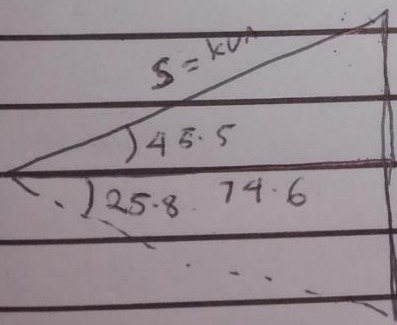 S = kVA
45.5
25.8 74.6